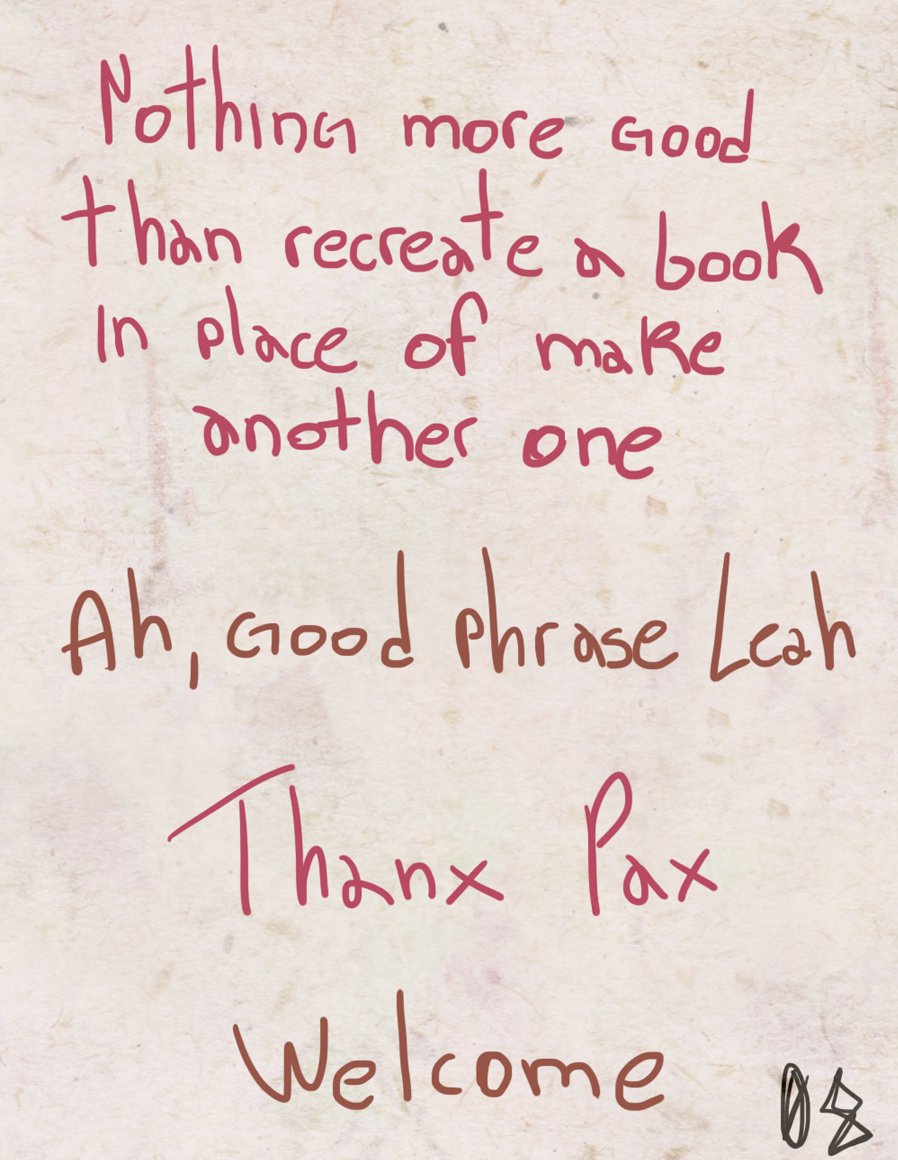 Nothing more Good
than recreate a book
In place of make
another one
Ah, Good phrase Leah
Thanx Pax
Welcome
08